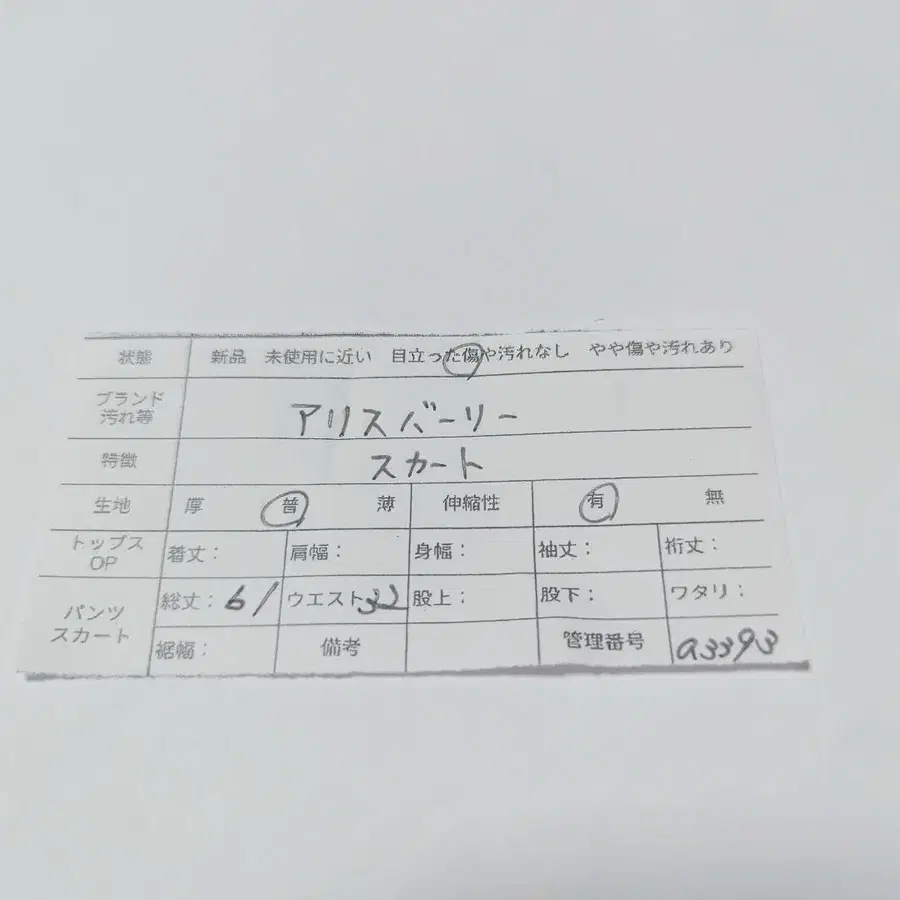 状態 新品 未使用に近い 目立った傷や汚れなし やや傷や汚れあり
ブランド
汚れ等 アリスバーリー
特徴 スカート
生地 厚 普 薄 伸縮性 有 無
トップス
OP 着丈： 肩幅： 身幅： 袖丈： 裄丈：
パンツ
スカート 総丈：61 ウエスト32 股上： 股下： ワタリ：
裾幅： 備考 管理番号 a3393